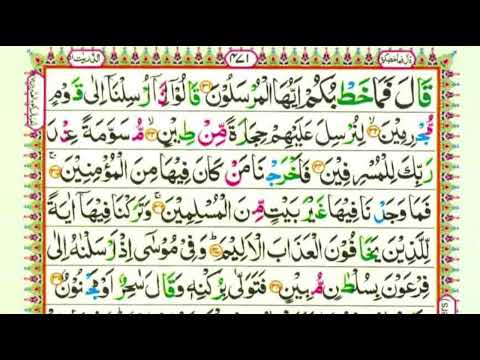 الذّٰریٰت ۵۱ ۴۷۱ قال فما خطبکم ۲۷
قَالَ فَمَا خَطْبُكُمْ اَيُّهَا الْمُرْسَلُوْنَ ۝۳۱ قَالُوْۤا اِنَّاۤ اُرْسِلْنَاۤ اِلٰى قَوْمٍ
مُّجْرِمِيْنَ ۝۳۲ لِنُرْسِلَ عَلَيْهِمْ حِجَارَةً مِّنْ طِيْنٍ ۝۳۳ مُّسَوَّمَةً عِنْدَ
رَبِّكَ لِلْمُسْرِفِيْنَ ۝۳۴ فَاَخْرَجْنَا مَنْ كَانَ فِيْهَا مِنَ الْمُؤْمِنِيْنَ ۝۳۵
فَمَا وَجَدْنَا فِيْهَا غَيْرَ بَيْتٍ مِّنَ الْمُسْلِمِيْنَ ۝۳۶ وَتَرَكْنَا فِيْهَاۤ اٰيَةً
لِّلَّذِيْنَ يَخَافُوْنَ الْعَذَابَ الْاَلِيْمَ ۝۳۷ وَفِيْ مُوْسٰۤى اِذْ اَرْسَلْنٰهُ اِلٰى
فِرْعَوْنَ بِسُلْطٰنٍ مُّبِيْنٍ ۝۳۸ فَتَوَلّٰى بِرُكْنِهٖ وَقَالَ سٰحِرٌ اَوْ مَجْنُوْنٌ ۝۳۹